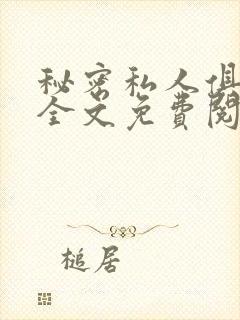 秘密私人俱
全文免費閱
槌居